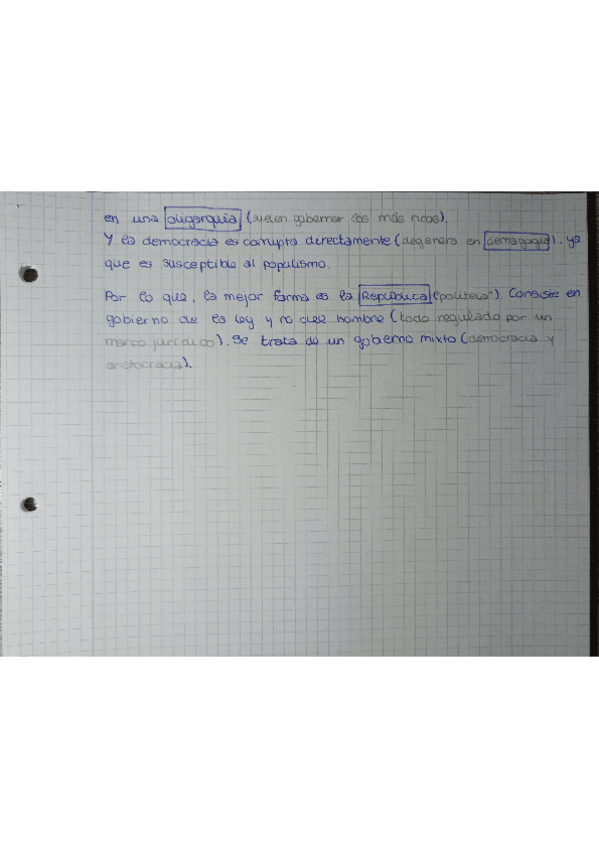 en una oligarquía (suelen gobernar los más ricos).
Y la democracia es corrupta directamente (degenera en demagogia), ya
que es susceptible al populismo.
Por lo que, la mejor forma es la República ("politeia"). Consiste en
gobierno de la ley y no del hombre (todo regulado por un
marco jurídico). Se trata de un gobierno mixto (democracia y
aristocracia).